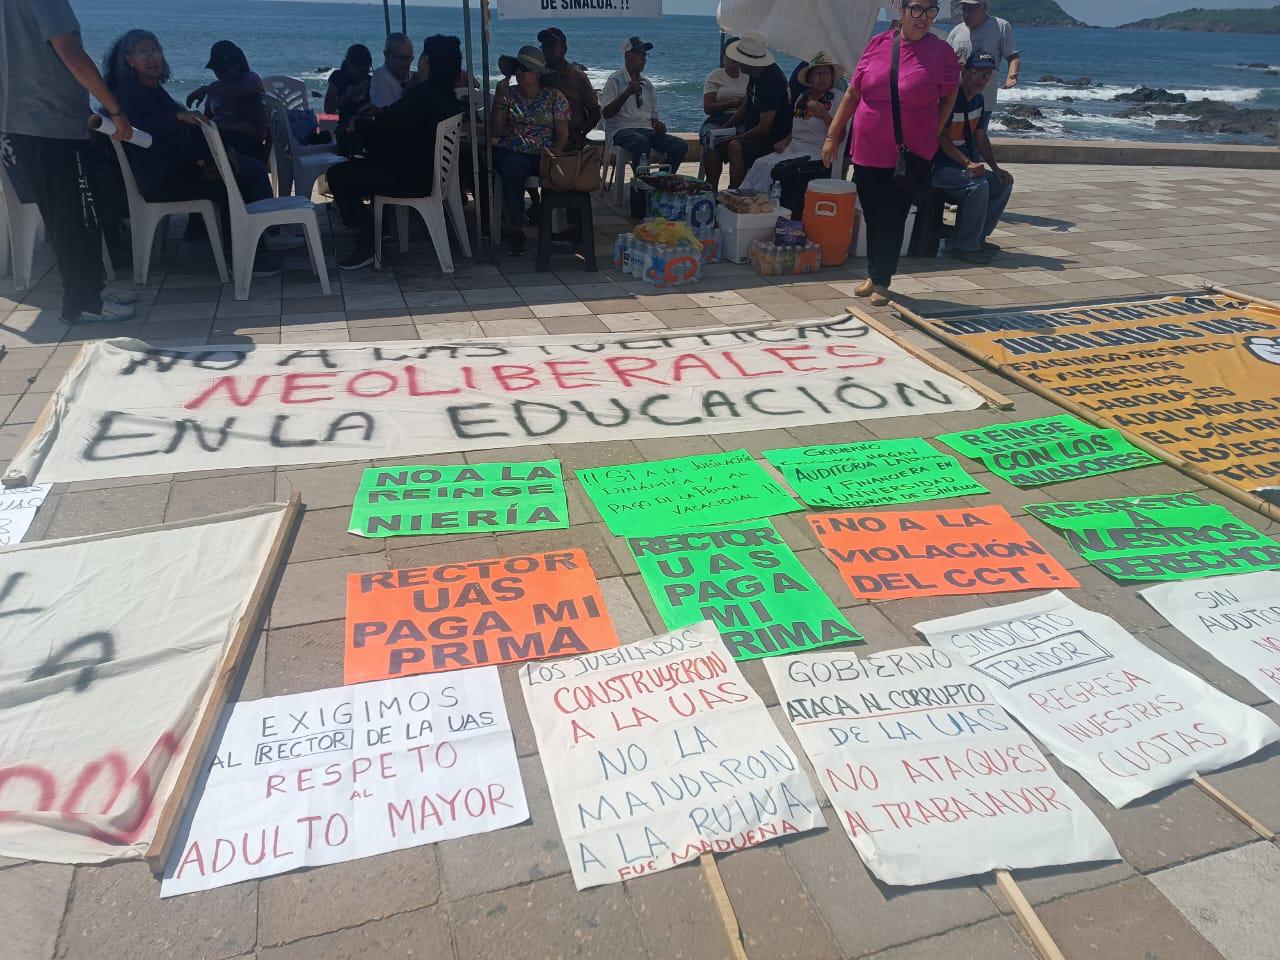 DE SINALOA. !!
NO A LAS POLÍTICAS
NEOLIBERALES
EN LA EDUCACIÓN
ADMINISTRATIVOS
JUBILADOS UAS
EXIGIMOS RESPETO
A NUESTROS
DERECHOS
LABORALES
ADQUIRIDOS
EL CONTRATO
NO A LA
REINGE
NIERÍA
!! SÍ A LA JUBILACIÓN
DINÁMICA Y AL
PAGO DE LA PRIMA
VACACIONAL !!
GOBIERNO
HAGAN
AUDITORIA LABORAL
Y FINANCIERA EN
LA UNIVERSIDAD
AUTÓNOMA DE SINALOA
REINGE
CON LOS
AVIADORES
RECTOR
UAS
PAGA MI
PRIMA
RECTOR
UAS
PAGA
MI
PRIMA
¡NO A LA
VIOLACIÓN
DEL CCT !
RESPETO
A
NUESTROS
DERECHOS
EXIGIMOS
AL RECTOR DE LA UAS
RESPETO
AL
ADULTO MAYOR
LOS JUBILADOS
CONSTRUYERON
A LA UAS
NO LA
MANDARON
A LA RUINA
FUE MADUEÑA
GOBIERNO
ATACA AL CORRUPTO
DE LA UAS
NO ATAQUES
AL TRABAJADOR
SINDICATO
TRAIDOR
REGRESA
NUESTRAS
CUOTAS
SIN
NO